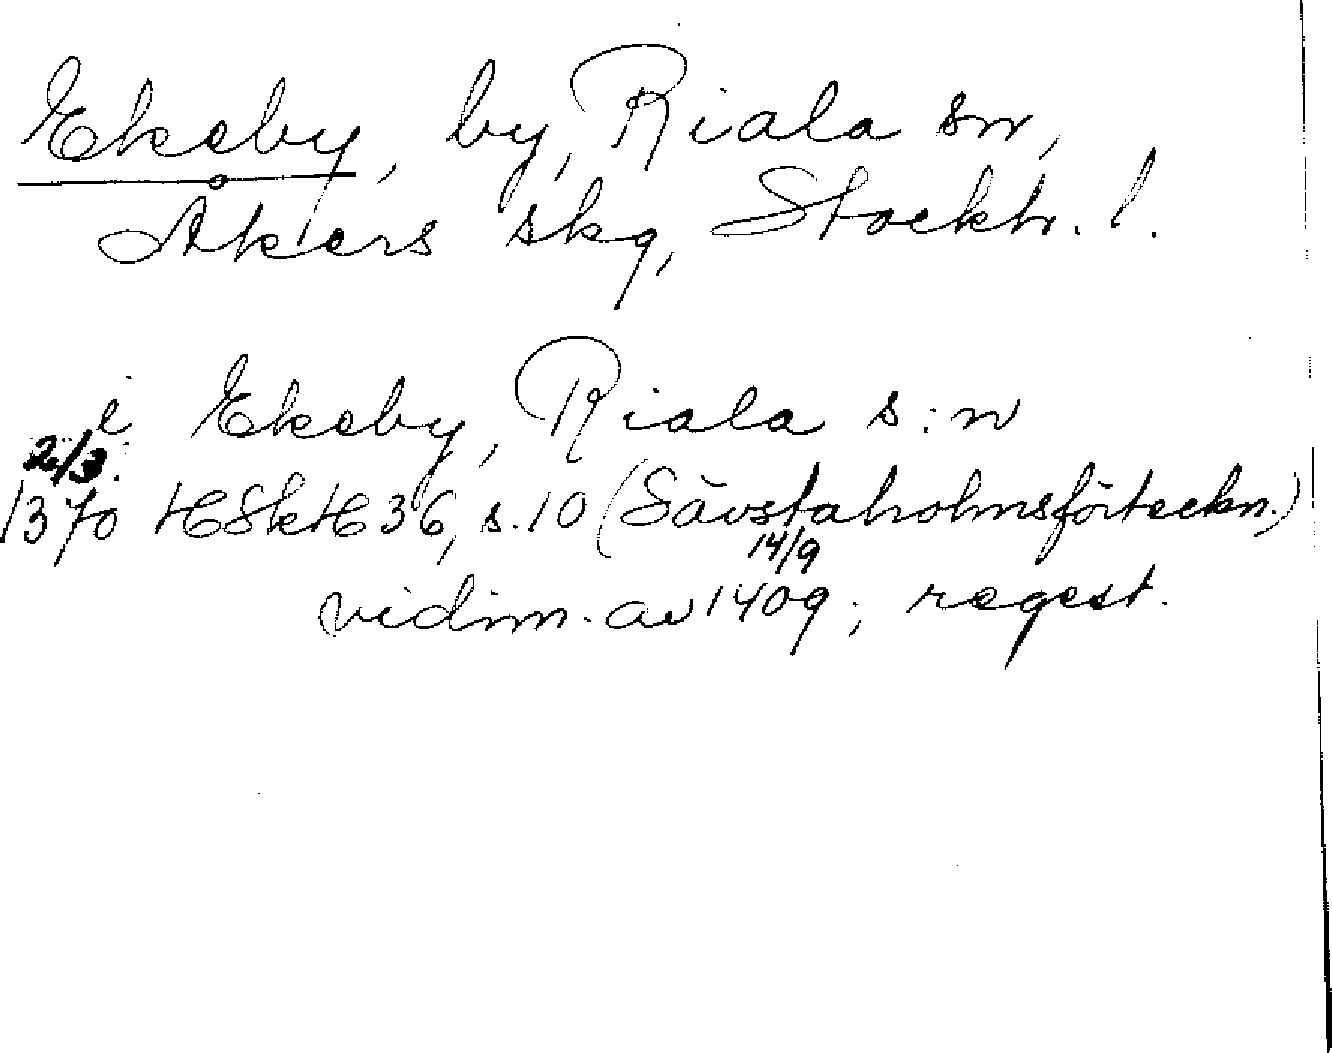 Ekeby, by, Riala sn,
Åkers skg, Stockh. l.
i Ekeby, Riala s:n
2/3
1370 HSkH 36, s. 10 (Sävstaholmsförteckn.)
14/9
vidim. av 1409; regest.